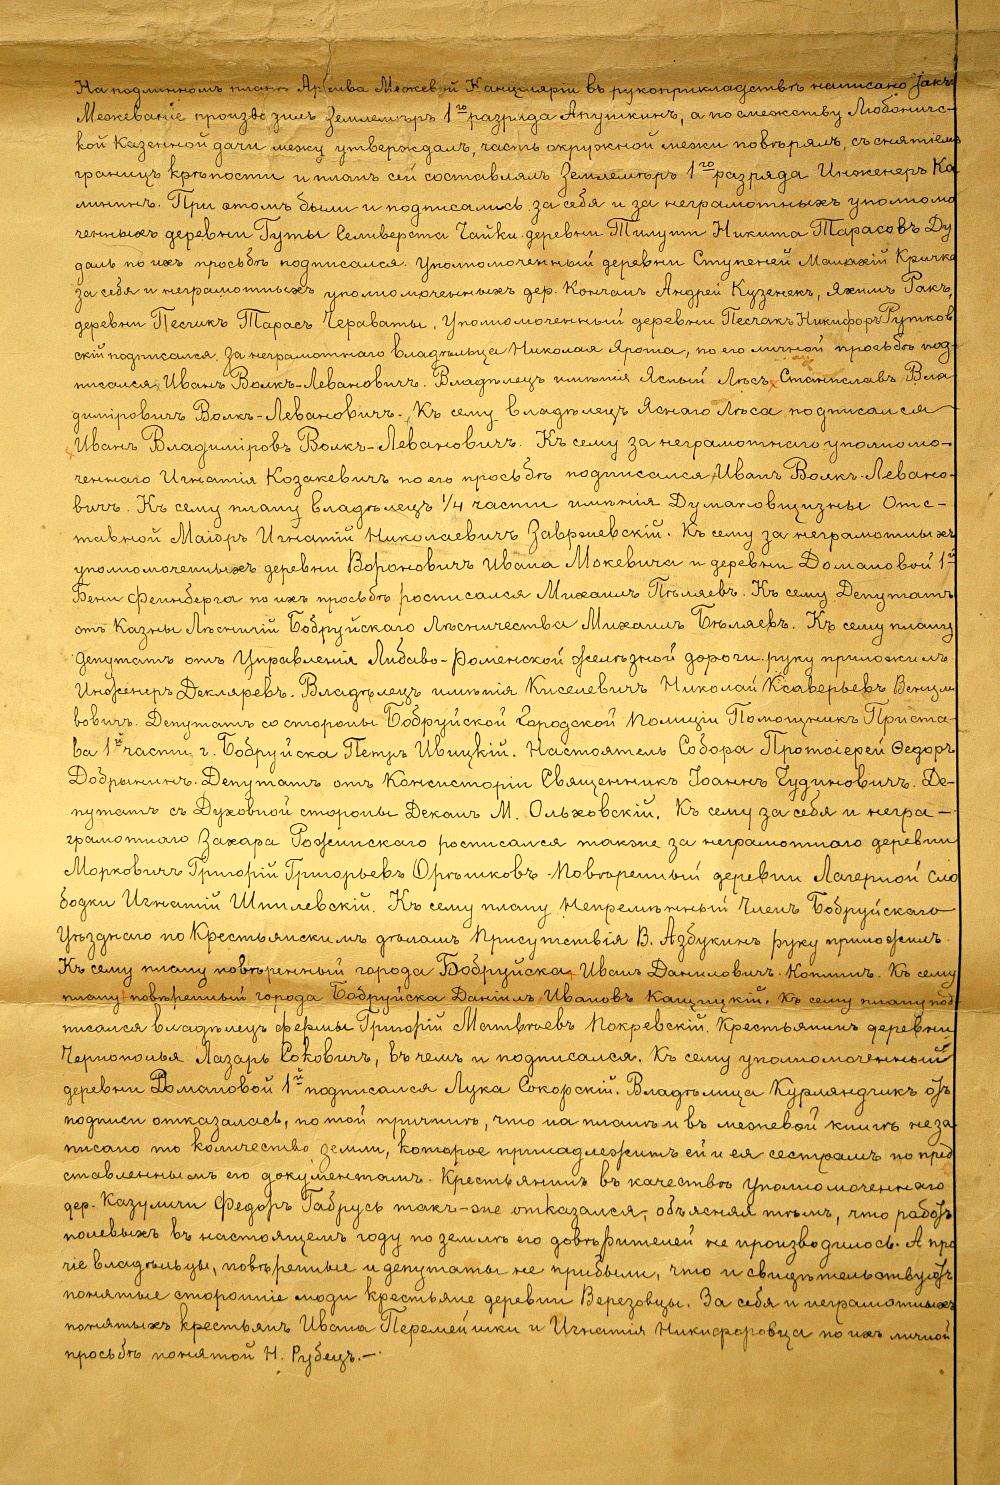 На подлинномъ планѣ Архива Межевой Канцелярiи въ рукоприкладствѣ написано такъ:
Межеванiе производилъ Землемѣръ 1го разряда Апушкинъ, а по смежству Любоничс-
кой Казенной дачи межу утверждалъ, часть окружной межи повѣрялъ, съ снятiемъ
границъ крѣпости и планъ сей составлялъ Землемѣръ 1го разряда Инженеръ Ка
лининъ. При этомъ были и подписались за себя и за неграмотныхъ уполномо
ченныхъ деревни Гуты Селиверста Чайки деревни Тилупи Никита Тарасовъ Ду
даль по ихъ просьбѣ подписался. Уполномоченный деревни Ступеней Малахiй Кричко
за себя и неграмотныхъ уполномоченныхъ дер. Кончаны Андрей Кузенекъ, Яхимъ Ракъ,
деревни Песчикъ Тарасъ Чераваты, Уполномоченный деревни Песчакъ Никифоръ Рутков
скiй подписался. За неграмотнаго владѣльца Николая Ярота, по его личной просьбѣ под-
писался Иванъ Волкъ-Левановичъ. Владѣлецъ имѣнiя Ясный Лѣсъ Станиславъ Вла
димiровичъ Волкъ-Левановичъ. Къ сему владѣлецъ Яснаго Лѣса подписался
Иванъ Владимiровъ Волкъ-Левановичъ. Къ сему за неграмотнаго уполномо-
ченнаго Игнатiя Козакевичъ по его просьбѣ подписался Иванъ Волкъ-Левано-
вичъ. Къ сему плану владѣлецъ 1/4 части имѣнiя Думановщизны Отс-
тавной Маiоръ Игнатiй Николаевичъ Завржевскiй. Къ сему за неграмотныхъ
уполномоченныхъ деревни Вороновичъ Ивана Мокевича и деревни Домановой 1й
Бени Феинберга по ихъ просьбѣ росписался Михаилъ Пѣляевъ. Къ сему Депутатъ
отъ Казны Лѣсничiй Бобруйскаго Лѣсничества Михаилъ Бѣляевъ. Къ сему плану
депутатъ отъ Управленiя Либаво-Роменской желѣзной дороги руку приложилъ
Инженеръ Декляревъ. Владѣлецъ имѣнiя Киселевичъ Николай Ксаверьевъ Венцли
вовичъ. Депутатъ со стороны Бобруйской Городской Полицiи Помощникъ Приста-
ва 1й части г. Бобруйска Петръ Ивицкiй. Настоятель Собора Протоiерей Ѳедоръ
Добрынинъ. Депутатъ отъ Консисторiи Священникъ Iоаннъ Чудиновичъ. Де-
путатъ съ Духовной стороны Деканъ М. Ольховскiй. Къ сему за себя и негра-
грамотнаго Захара Рожинскаго росписался также за неграмотнаго деревни
Морковичъ Григорiй Григорьевъ Орѣшковъ. Повѣренный деревни Лагерной Сло
бодки Игнатiй Шпилевскiй. Къ сему плану Непремѣнный Членъ Бобруйскаго
Уѣзднаго по Крестьянскимъ дѣламъ Присутствiя В. Азбукинъ руку приложилъ.
Къ сему плану повѣренный города Бобруйска Иванъ Даниловичъ Копилъ. Къ сему
плану повѣренный города Бобруйска Данiилъ Ивановъ Кащицкiй. Къ сему плану под-
писался владѣлецъ фермы Григорiй Матвѣевъ Покревскiй. Крестьянинъ деревни
Чернополья Лазарь Соковичъ, въ чемъ и подписался. Къ сему уполномоченный
деревни Домановой 1й подписался Лука Сокорскiй. Владѣлица Курляндчикъ отъ
подписи отказалась, по той причинѣ, что на планѣ и въ межевой книгѣ не за
писано то количество земли, которое принадлежитъ ей и ея сестрамъ по пред
ставленнымъ его документамъ. Крестьянинъ въ качествѣ уполномоченнаго
дер. Казуличи Федоръ Габрусь такъ-же отказался, объясняя тѣмъ, что работъ
полевыхъ въ настоящемъ году по землѣ его довѣрителей не производилось. А про
чiе владѣльцы, повѣренные и депутаты не прибыли, что и свидѣтельствуютъ
понятые стороннiе люди крестьяне деревни Березовцы. За себя и неграмотныхъ
понятыхъ крестьянъ Ивана Перемейшки и Игнатiя Никифоровца по ихъ личной
просьбѣ понятой Н. Рубецъ.—